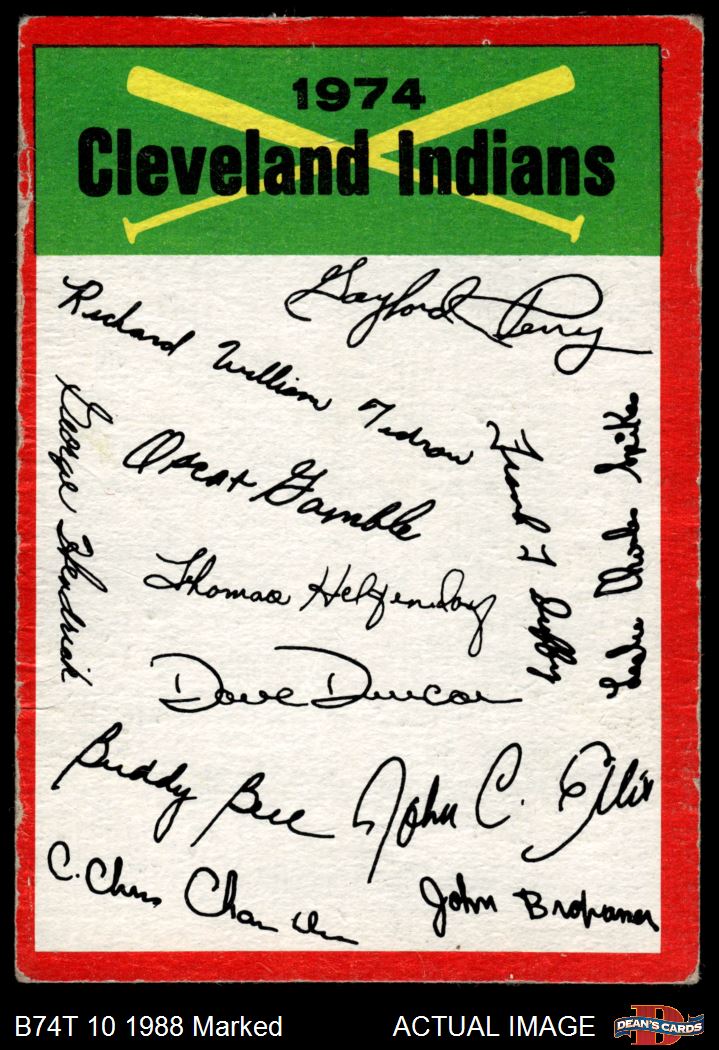 1974
Cleveland Indians
Gaylord Perry
Richard William Tidrow
George Hendrick
Oscar Gamble
Frank T Duffy
Leslie Charles Spikes
Thomas Hilgendorf
Dave Duncan
Buddy Bell
John C. Ellis
C. Chris Chambliss
John Brohamer
B74T 10 1988 Marked
ACTUAL IMAGE
D
DEAN'S CARDS